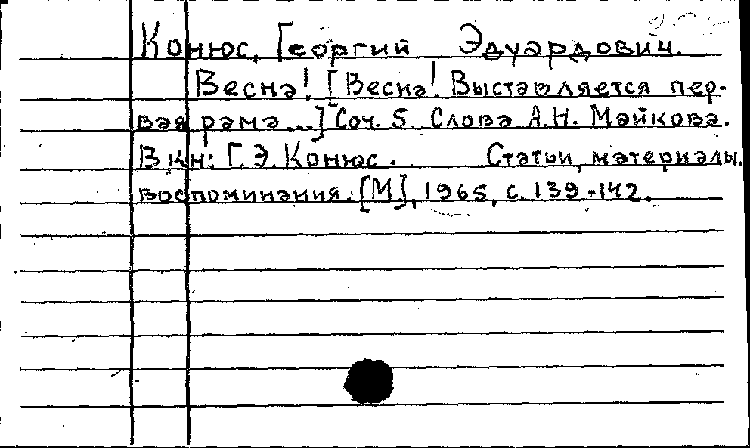 Конюс, Георгий Эдуардович.
Весна! [Весна! Выставляется пер-
вая рама...] Соч. 5 Слова А.Н. Майкова.
В кн: Г.Э. Конюс. Статьи, материалы.
воспоминания. [М], 1965, с. 139-142.